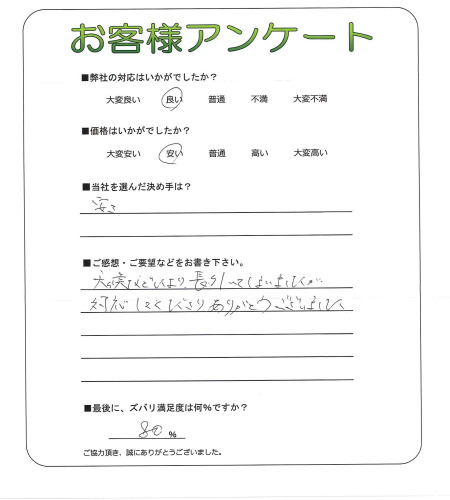 お客様アンケート
■弊社の対応はいかがでしたか？
大変良い 良い 普通 不満 大変不満
■価格はいかがでしたか？
大変安い 安い 普通 高い 大変高い
■当社を選んだ決め手は？
安さ
■ご感想・ご要望などをお書き下さい。
天候などにより、長引いてしまいましたが
対応してくださりありがとうございました
■最後に、ズバリ満足度は何％ですか？
80 ％
ご協力頂き、誠にありがとうございました。